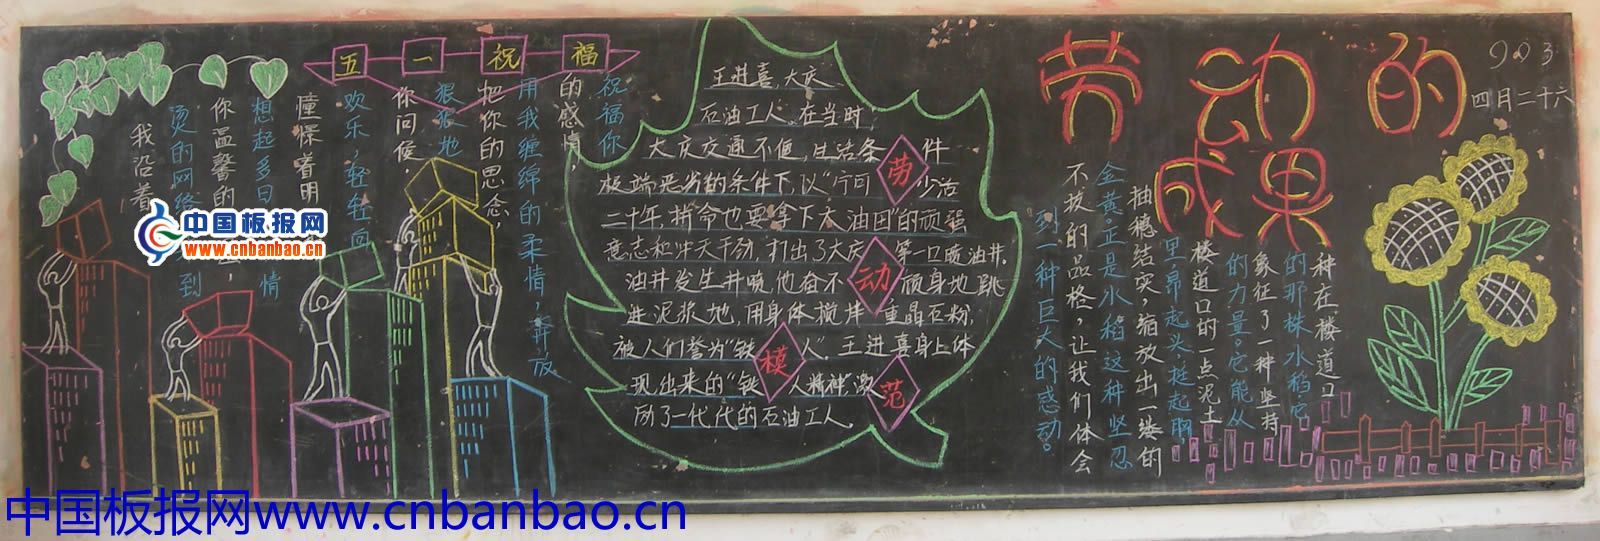 五一祝福
我沿着
烫的网络 到
你温馨的
想起多日 情
憧憬着明
欢乐，轻轻向
你问候，
狠狠地
把你的思念，
用我缠绵的柔情，奔放
的感情，
祝福你
王进喜，大庆
石油工人。在当时，
大庆交通不便，生活条件
极端恶劣的条件下，以"宁可少活
二十年，拚命也要拿下大油田"的顽强
意志和冲天干劲，打出了大庆第一口喷油井。
油井发生井喷，他奋不顾身地跳
进泥浆地，用身体搅拌重晶石粉，
被人们誉为"铁人"。王进喜身上体
现出来的"铁人精神"，激
励了一代代的石油工人。
劳
动
模
范
劳动的
成果
903
四月二十六
种在楼道口
的那株水稻，它
象征了一种坚持
的力量。它能从
楼道口的一点泥土
里昂起头，挺起胸，
抽穗结实，绽放出一缕的
金黄。正是水稻这种坚忍
不拔的品格，让我们体会
到一种巨大的感动。
中国板报网
www.cnbanbao.cn
中国板报网www.cnbanbao.cn